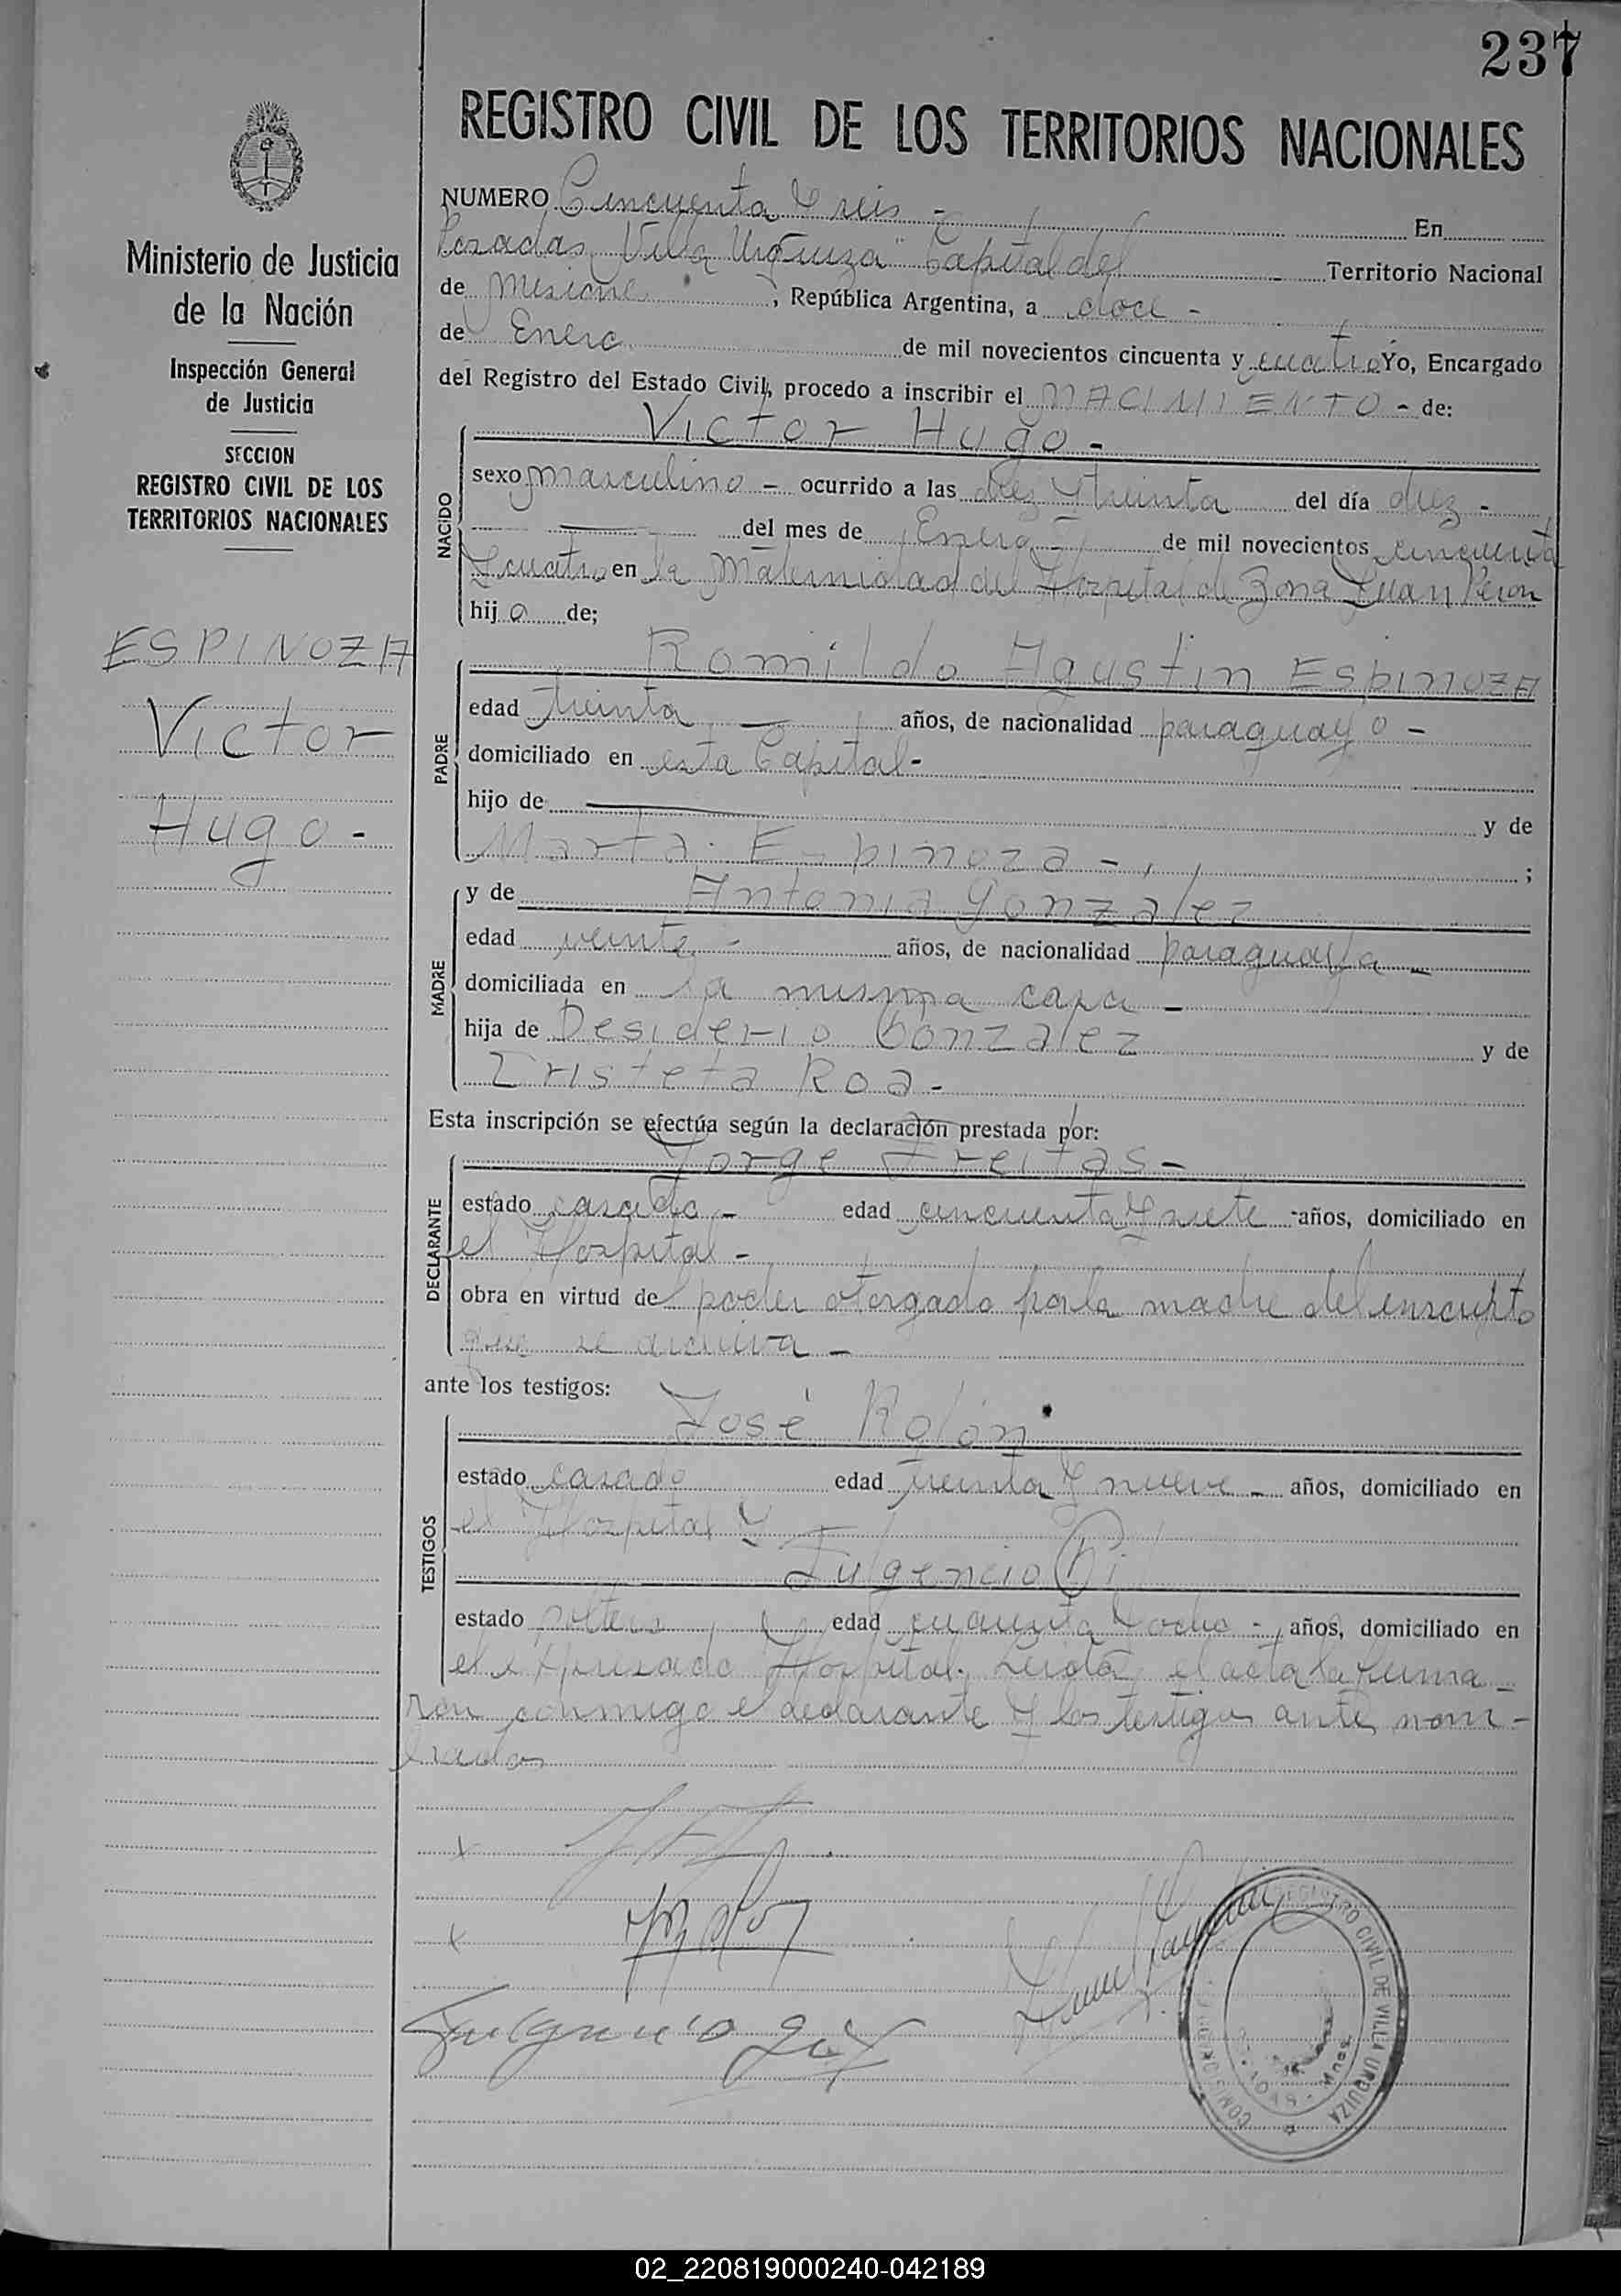 237
REGISTRO CIVIL DE LOS TERRITORIOS NACIONALES
Ministerio de Justicia
de la Nación
Inspección General
de Justicia
SECCION
REGISTRO CIVIL DE LOS
TERRITORIOS NACIONALES
ESPINOZA
Victor
Hugo -
NUMERO Cincuenta y seis - En
Posadas "Villa Urquiza" Capital del Territorio Nacional
de Misiones, República Argentina, a doce -
de Enero de mil novecientos cincuenta y cuatro Yo, Encargado
del Registro del Estado Civil, procedo a inscribir el NACIMIENTO - de:
Victor Hugo -
NACIDO
sexo masculino - ocurrido a las diez y treinta del día diez -
del mes de Enero - de mil novecientos cincuenta
y cuatro en la Maternidad del Hospital de Zona Juan Peron
hijo de;
PADRE
Romildo Agustin Espinoza
edad treinta - años, de nacionalidad paraguayo -
domiciliado en esta Capital -
hijo de y de
Marta Espinoza - ;
MADRE
y de Antonia Gonzalez
edad veinte - años, de nacionalidad paraguaya -
domiciliada en la misma casa -
hija de Desiderio Gonzalez y de
Roa -
Esta inscripción se efectúa según la declaración prestada por:
DECLARANTE
Jorge Freitas -
estado casado - edad cincuenta y siete - años, domiciliado en
el Hospital -
obra en virtud del poder otorgado por la madre del inscripto
que se archiva -
ante los testigos:
TESTIGOS
José Rolón
estado casado edad treinta y nueve - años, domiciliado en
el Hospital y
Fulgencio
estado soltero edad cuarenta y ocho - años, domiciliado en
el expresado Hospital. Leída el acta la firma-
ron conmigo el declarante y los testigos antes nom-
brados
x
x
Fulgencio
REGISTRO CIVIL DE VILLA URQUIZA
02_220819000240-042189